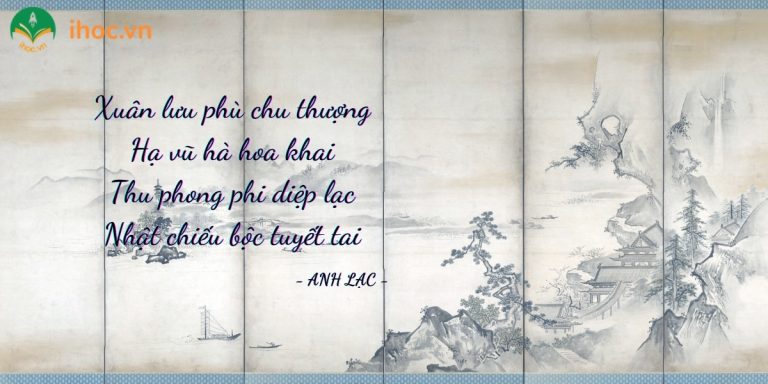 ihoc.vn
ihoc.vn
Xuân lưu phù chu thượng
Hạ vũ hà hoa khai
Thu phong phi diệp lạc
Nhật chiếu bộc tuyết tai
- ANH LẠC -